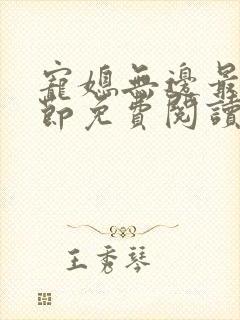 寵媳無邊最
節免費閱讀
王秀琴